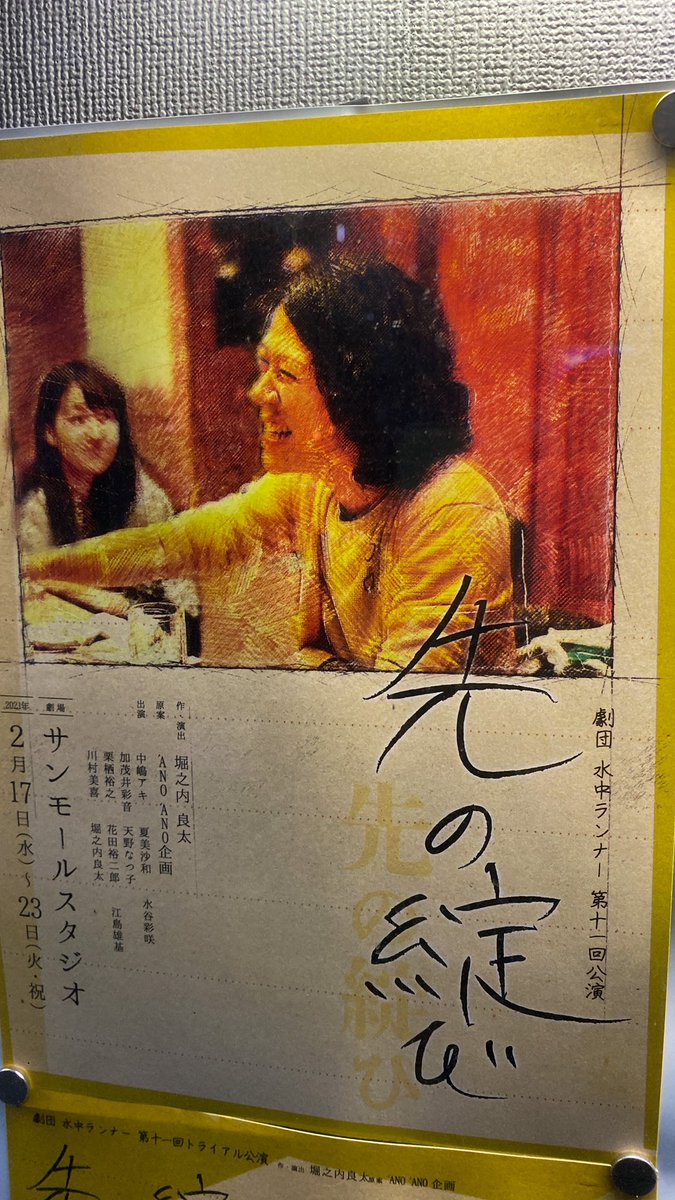 劇団 水中ランナー 第十一回公演
先の綻び
先の綻び
作・演出 堀之内 良太
原案 'ANO 'ANO企画
出演 中嶋アキ 夏美沙和 水谷彩咲
加茂井彩音 天野なつ子
栗栖裕之 花田裕二郎 江島雄基
川村美喜 堀之内良太
劇場 サンモールスタジオ
2021年 2月17日(水)〜23日(火・祝)
劇団 水中ランナー 第十一回トライアル公演
作・演出 堀之内良太 原案 'ANO 'ANO 企画